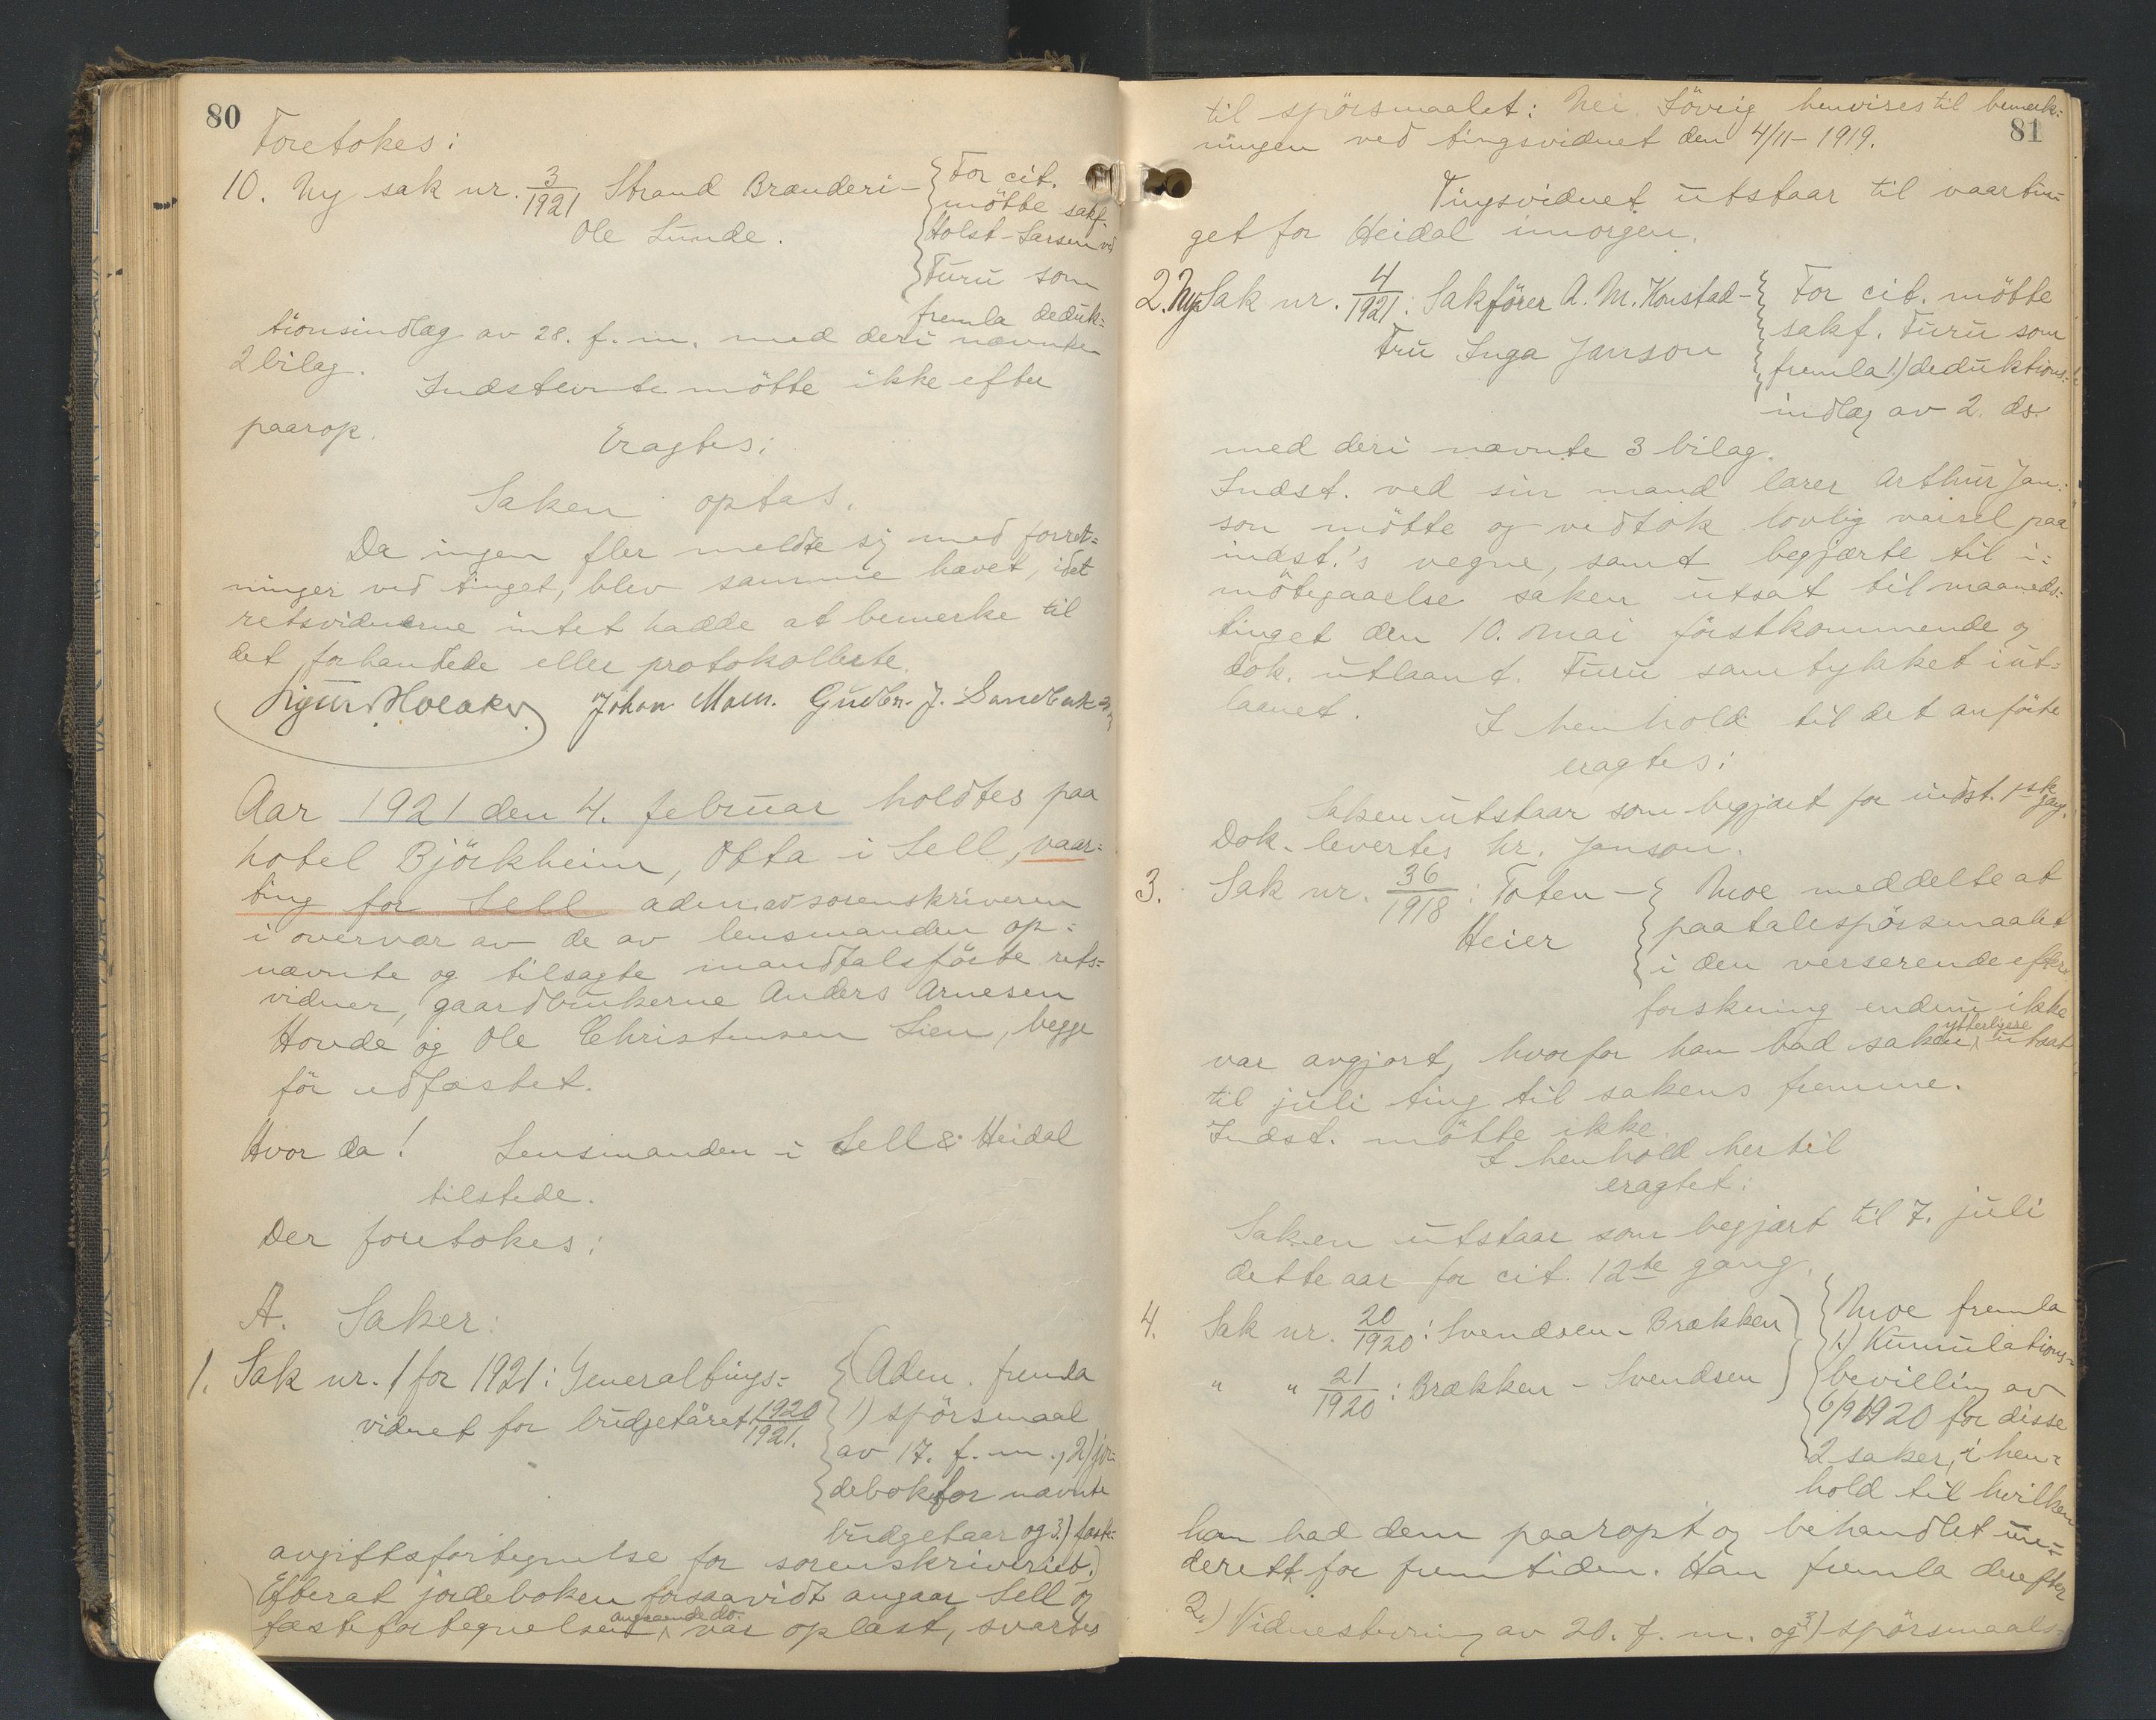 80
Foretokes:
10. Ny sak nr. 3/1921 Strand Brænderi - { For cit.
Ole Lunde. { mötte sakf.
{ Holst-Larsen ved
{ Furu som
fremla deduk=
tionsindlæg av 28. f. m. med deri nævnte
2 bilag.
Indstevnte mötte ikke efter
paarop.
Eragtes:
Saken optas.
Da ingen fler meldte sig med forret=
ninger ved tinget, blev samme hævet, idet
retsvidnerne intet hadde at bemerke til
det forhandlede eller protokollerte.
Johan Moen. Gudbr. J. Sandbakken
Aar 1921 den 4. februar holdtes paa
hotel Björkheim, Otta i Sell, vaar=
ting for Sell adm. av sorenskriveren
i overvær av de av lensmanden op=
nævnte og tilsagte mandtalsförte rets=
vidner, gaardbrukerne Anders Arnesen
Hovde og Ole Christensen Lien, begge
för edfæstet.
Hvor da! Lensmanden i Sell & Heidal
tilstede.
Der foretokes:
A. Saker:
1. Sak nr. 1 for 1921: Generaltings= { Adm. fremla
vidnet for budgetåret 1920/1921. { 1) spörsmaal
{ av 17. f. m., 2) jor=
{ debok for nævnte
budgetaar og 3.) fæste=
avgiftsfortegnelse for sorenskriveriet.
Efterat jordeboken forsaavidt angaar Sell og
fæstefortegnelsen angaaende do. var oplæst, svartes
81
til spörsmaalet: Nei. Iövrig henvises til bemerk=
ningen ved tingsvidnet den 4/11-1919.
Tingsvidnet utstaar til vaartin=
get for Heidal imorgen.
2. Ny Sak nr. 4/1921: Sakförer A. M. Konstad - { For cit. mötte
Fru Inga Janson { sakf. Furu som
{ fremla 1.) deduktions=
indlæg av 2. ds.
med deri nævnte 3 bilag.
Indst. ved sin mand lærer Arthur Jan=
son mötte og vedtok lovlig varsel paa
indst.'s vegne, samt begjærte til i=
mötegaaelse saken utsat til maaneds=
tinget den 10. mai förstkommende og
dok. utlaant. Furu samtykket i ut=
laanet.
I henhold til det anförte
eragtes:
Saken utstaar som begjært for indst. 1ste gang.
Dok. levertes hr. Janson.
3. Sak nr. 36/1918: Toten - { Moe meddelte at
Heier { paatalespörsmaalet
{ i den verserende efter=
forskning endnu ikke
var avgjort, hvorfor han bad saken ytterligere utsat
til juli ting til sakens fremme.
Indst. mötte ikke.
I henhold hertil
eragtet:
Saken utstaar som begjært til 7. juli
dette aar for cit. 12te gang.
4. Sak nr. 20/1920: Svendsen - Brækken } { Moe fremla
" " 21/1920: Brækken - Svendsen } { 1.) Kumulations=
{ bevilling av
{ 6/9 1920 for disse
{ 2 saker, i hen=
hold til hvilken
han bad dem paaropt og behandlet un=
derett for fremtiden. Han fremla derefter
2.) Vidnestevning av 20. f. m. og 3) spörsmaals=